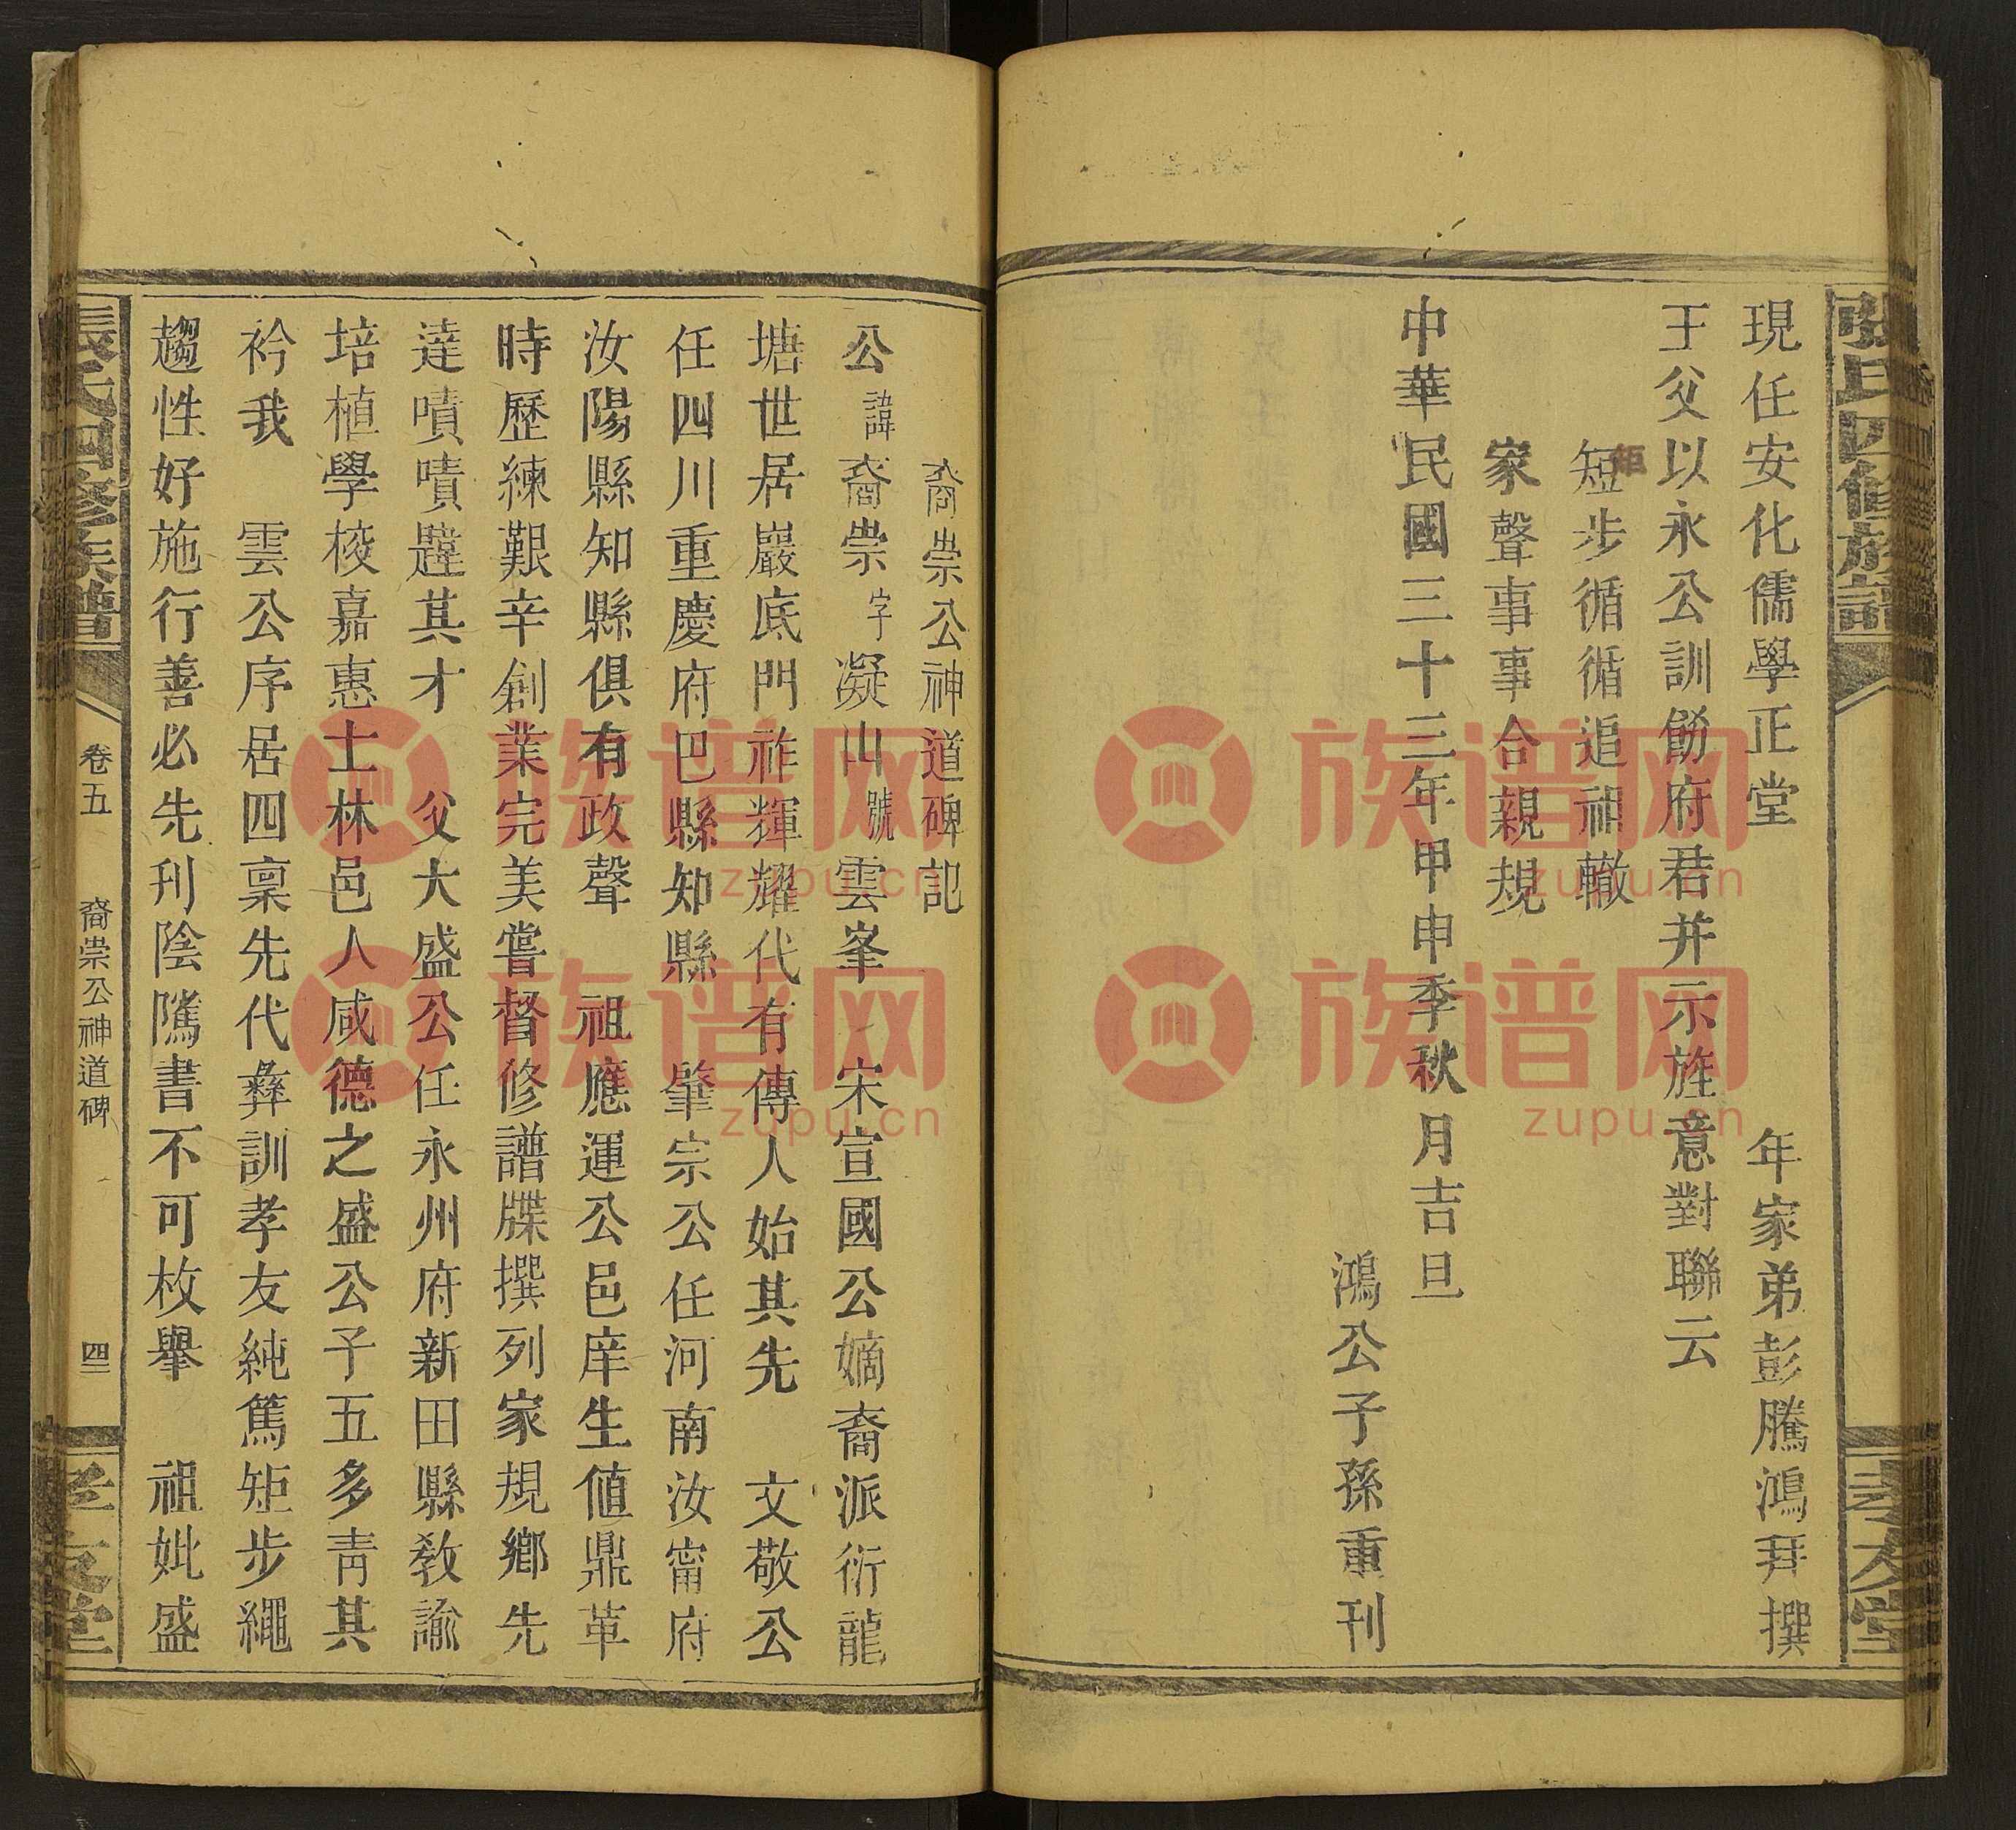 張氏四修族譜
孝友堂
現任安化儒學正堂　年家弟彭騰鴻拜撰
王父以永公訓飭府君并示旌意對聯云
短步循循追祖轍
矩
家聲事事合親規
中華民國三十三年甲申季秋月吉旦
鴻公子孫重刊
裔崇公神道碑記
公諱裔崇字凝山號雲峯　宋宣國公嫡裔派衍龍
塘世居巖底門祚輝耀代有傳人始其先　文敬公
任四川重慶府巴縣知縣　肇宗公任河南汝甯府
汝陽縣知縣俱有政聲　祖應運公邑庠生値鼎革
時歷練艱辛創業完美嘗督修譜牒撰列家規鄉先
達嘖嘖韙其才　父大盛公任永州府新田縣敎諭
培植學校嘉惠士林邑人咸德之盛公子五多靑其
衿我　雲公序居四稟先代彝訓孝友純篤矩步繩
趨性好施行善必先刋陰隲書不可枚舉　祖妣盛
張氏四修族譜
卷五
裔崇公神道碑
四二
孝友堂
族谱网
zupu.cn
族谱网
zupu.cn
族谱网
zupu.cn
族谱网
zupu.cn